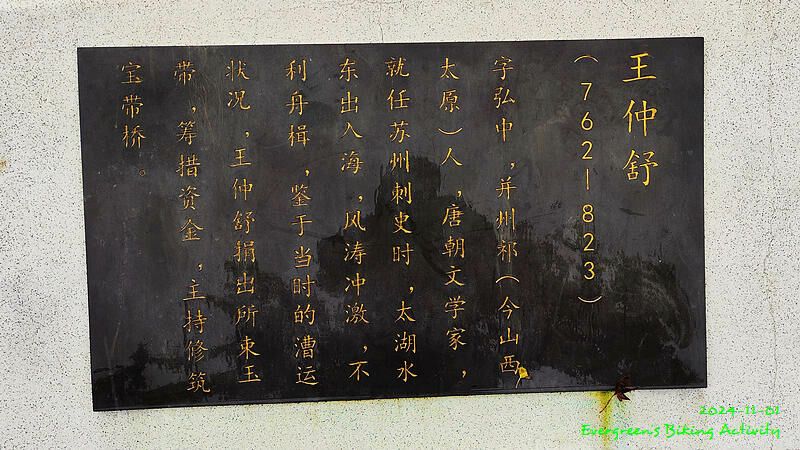 王仲舒
（762—823）
字弘中，并州祁（今山西
太原）人，唐朝文学家，
就任苏州刺史时，太湖水
东出入海，风涛冲激，不
利舟楫，鉴于当时的漕运
状况，王仲舒捐出所束玉
带，筹措资金，主持修筑
宝带桥。
2024-11-01
Evergreen's Biking Activity